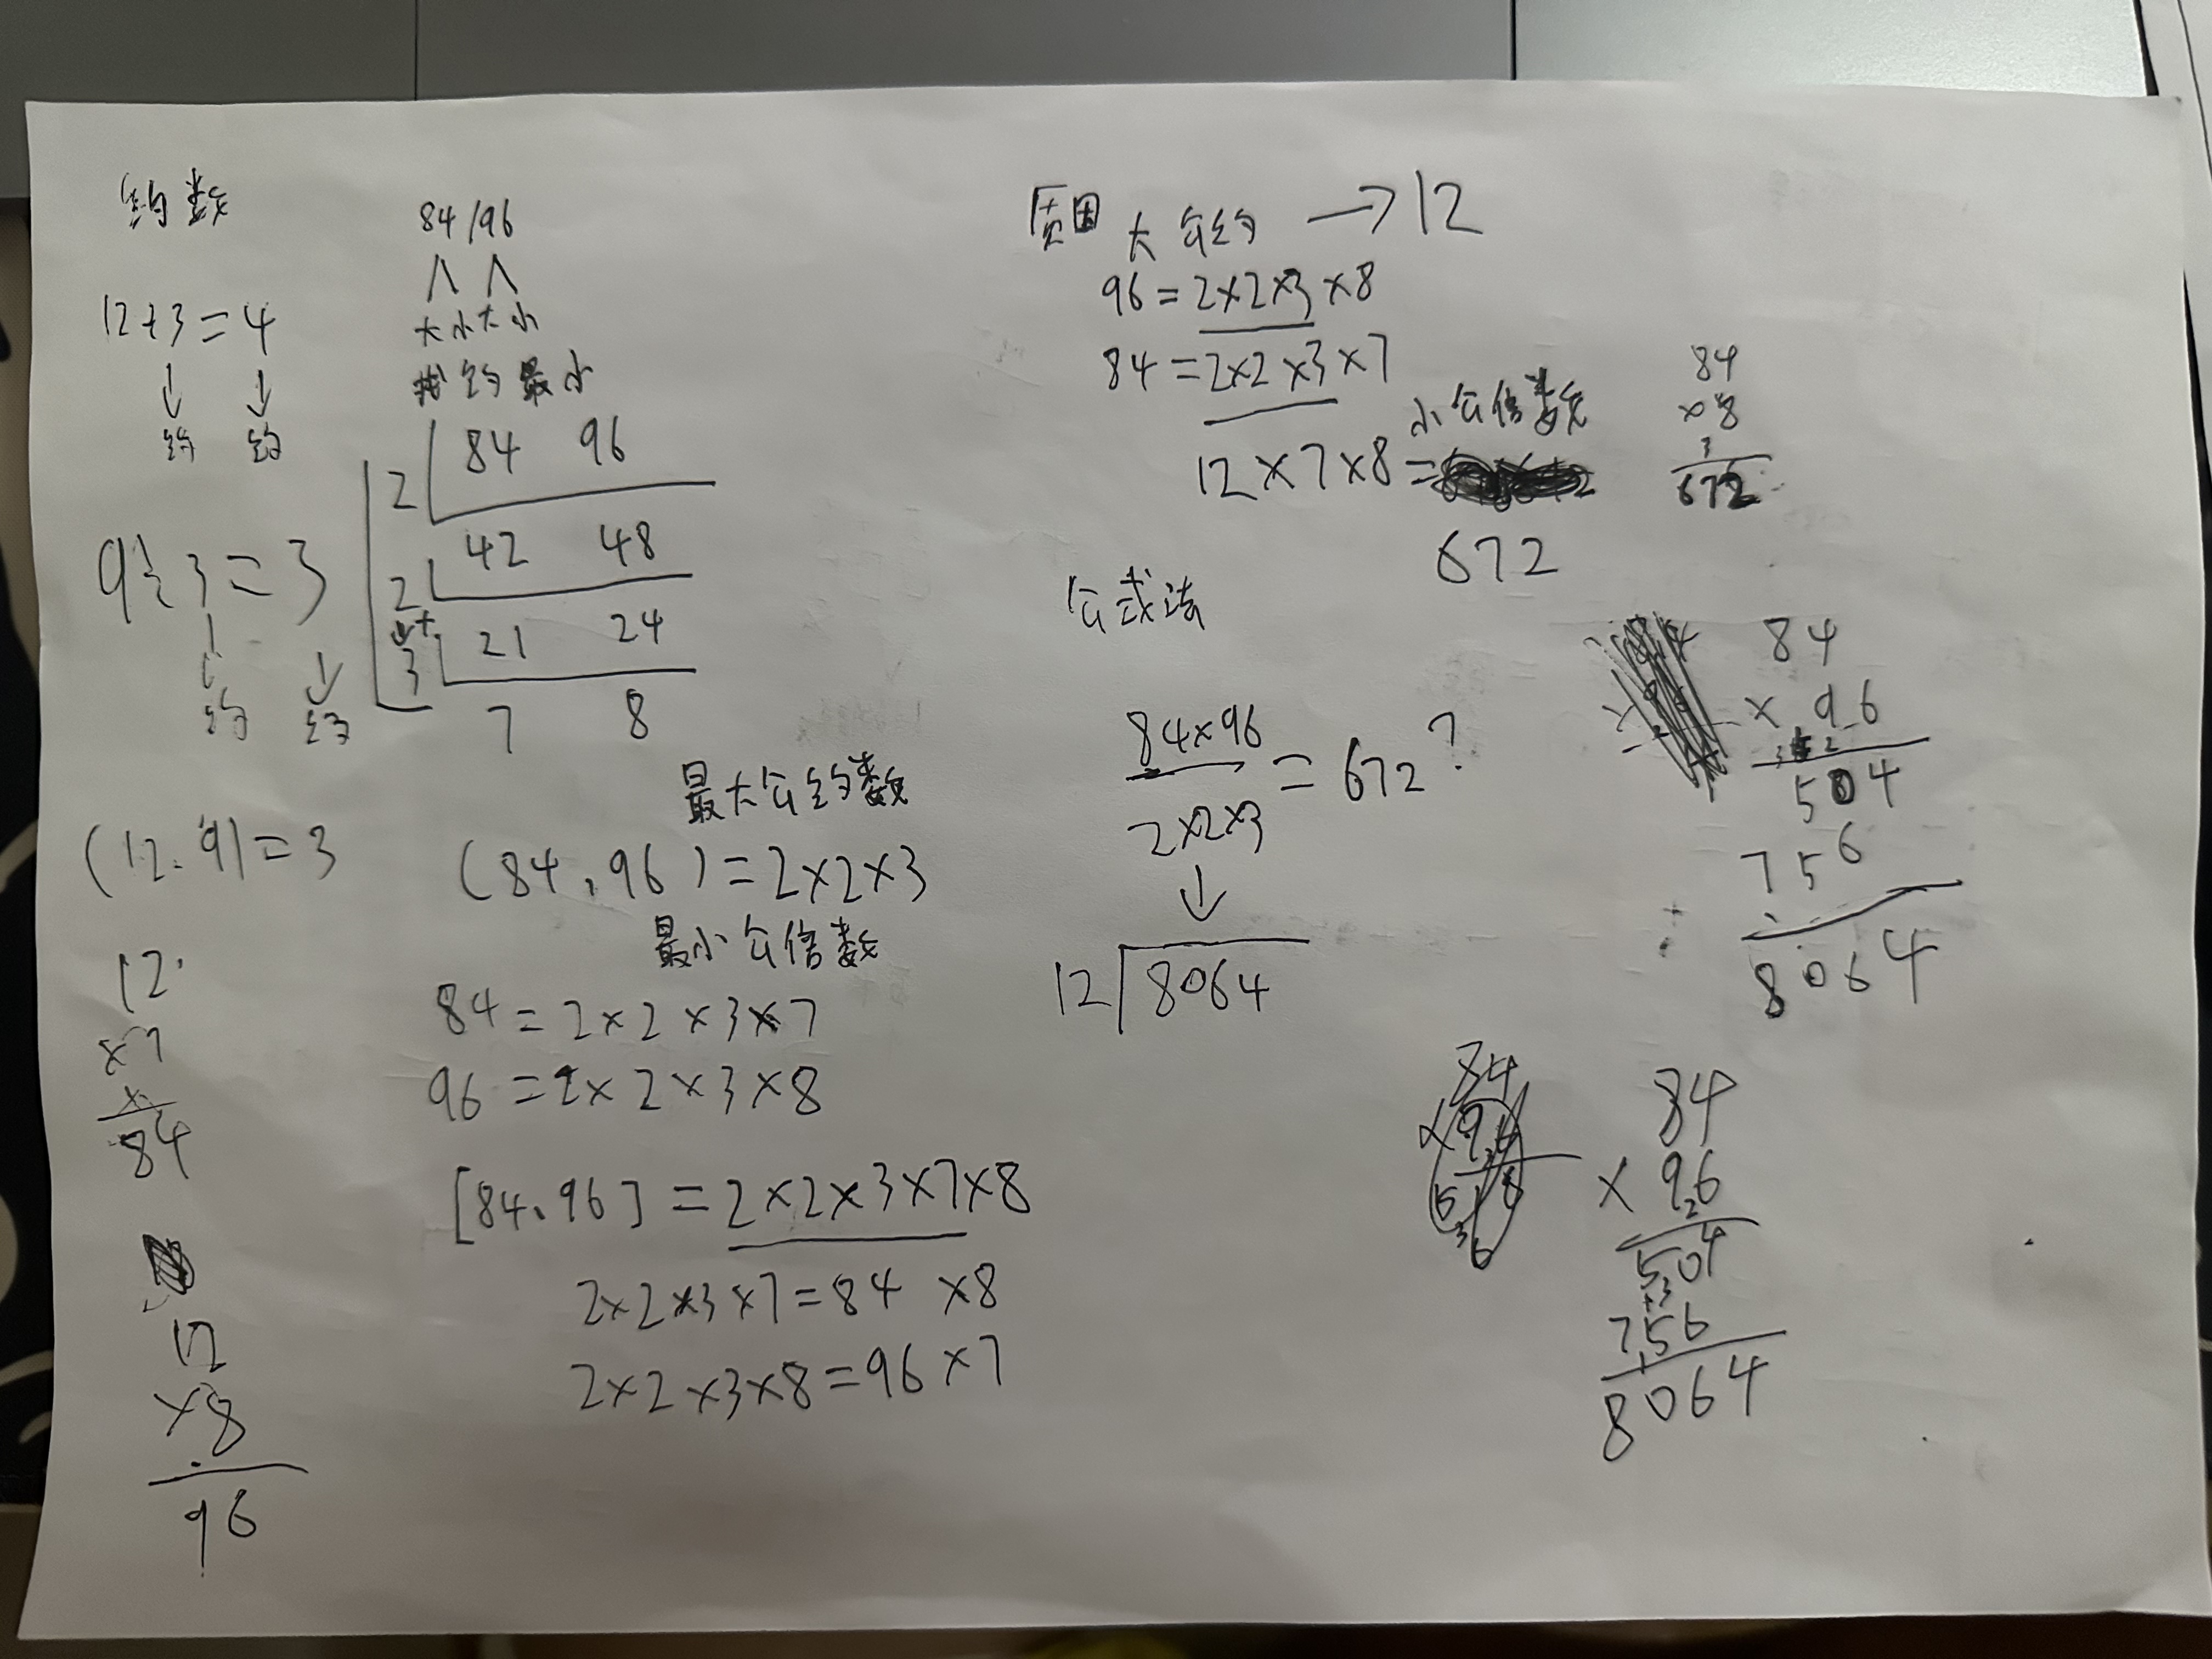 约数
12÷3=4
约 约
9÷3=3
约 约
(12.9)=3
12
×7
84
12
×8
96
84/96
大小大小
约最小
2 84 96
2 42 48
3 21 24
7 8
最大公约数
(84,96)=2×2×3
最小公倍数
84=2×2×3×7
96=2×2×3×8
[84、96]=2×2×3×7×8
2×2×3×7=84 ×8
2×2×3×8=96×7
质因 大公约 →12
96=2×2×3×8
84=2×2×3×7
小公倍数
12×7×8=
672
84
×8
3
672
公式法
84×96
2×2×3
=672?
12 8064
84
×96
504
756
8064
84
×96
504
756
8064